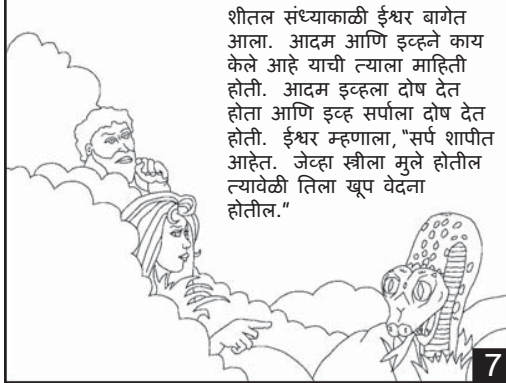 शीतल संध्याकाळी ईश्वर बागेत
आला. आदम आणि इव्हने काय
केले आहे याची त्याला माहिती
होती. आदम इव्हला दोष देत
होता आणि इव्ह सर्पाला दोष देत
होती. ईश्वर म्हणाला, “सर्प शापीत
आहेत. जेव्हा स्त्रीला मुले होतील
त्यावेळी तिला खूप वेदना
होतील.”
7